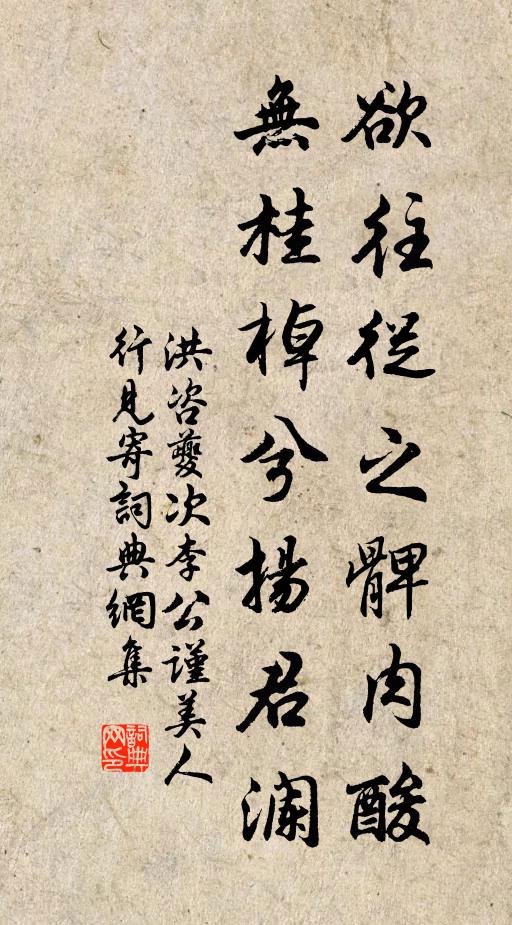 欲往從之髀肉酸
無桂棹兮揚君瀾
洪咨夔次李公謹美人
行見寄詞典網集
詞典网印